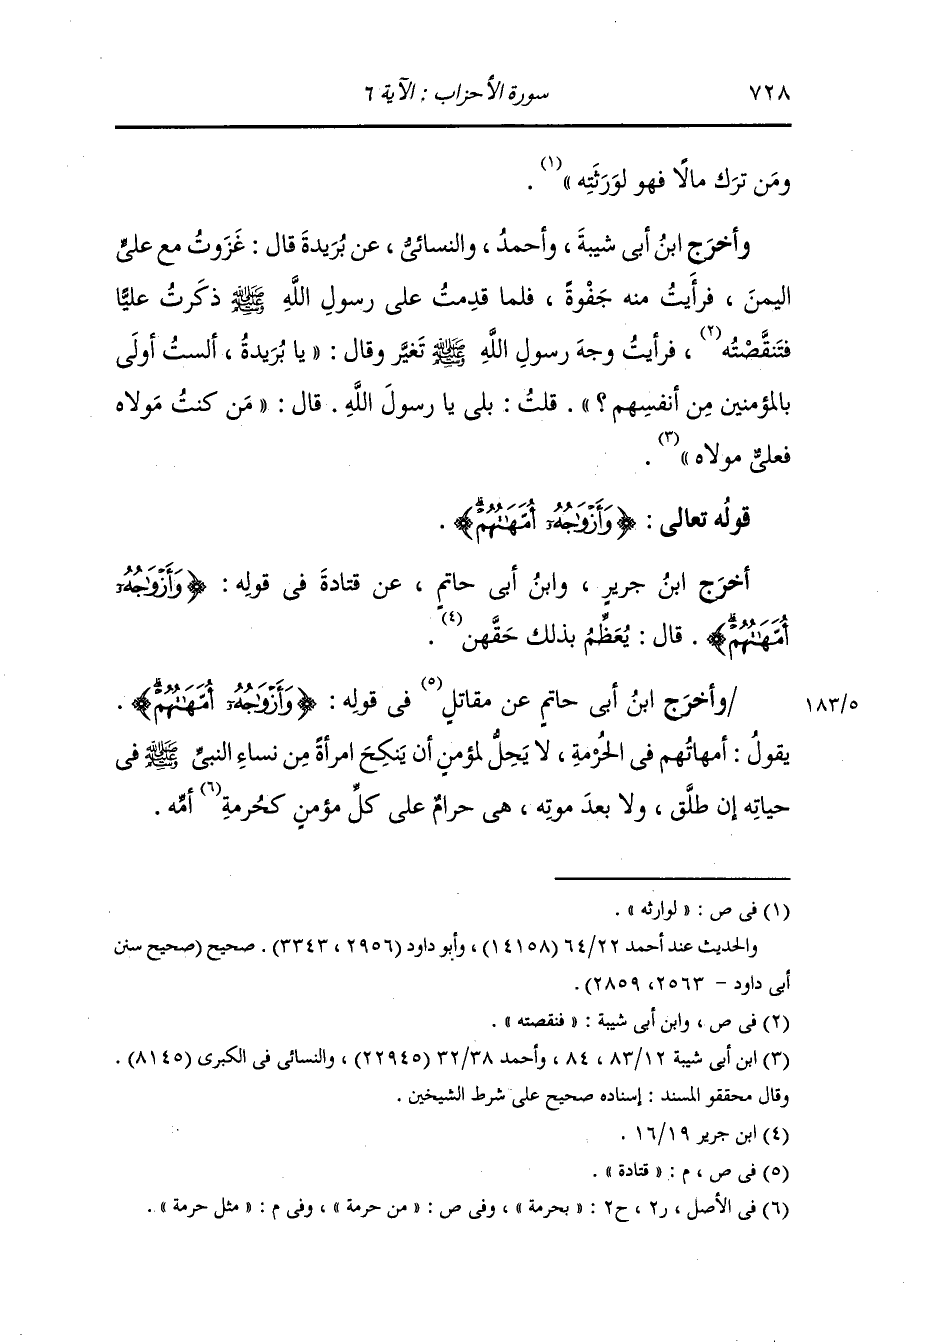 ٧٢٨ سورة الأحزاب : الآية ٦
ومَن ترَك مالًا فهو لوَرَثَتِه »(١) .
وأخرَج ابنُ أبى شيبةَ ، وأحمدُ ، والنسائىُّ ، عن بُرَيدةَ قال : غَزَوتُ مع علىٍّ
اليمنَ ، فرأَيتُ منه جَفْوةً ، فلما قدِمتُ على رسولِ اللَّهِ ﷺ ذكَرتُ عليًّا
فتَنقَّصْتُه(٢) ، فرأيتُ وجهَ رسولِ اللَّهِ ﷺ تَغيَّر وقال : « يا بُرَيدةُ ، ألستُ أولَى
بالمؤمنين مِن أنفسِهم ؟ » . قلتُ : بلى يا رسولَ اللَّهِ . قال : « مَن كنتُ مَولاه
فعلىٌّ مولاه »(٣) .
قولُه تعالى : ﴿وَأَزْوَٰجُهُۥٓ أُمَّهَٰتُهُمْۗ﴾ .
أخرَج ابنُ جريرٍ ، وابنُ أبى حاتمٍ ، عن قتادةَ فى قولِه : ﴿وَأَزْوَٰجُهُۥٓ
أُمَّهَٰتُهُمْۗ﴾ . قال : يُعَظِّمُ بذلك حَقَّهن(٤) .
١٨٣/٥ /وأخرَج ابنُ أبى حاتمٍ عن مقاتلٍ(٥) فى قولِه : ﴿وَأَزْوَٰجُهُۥٓ أُمَّهَٰتُهُمْۗ﴾ .
يقولُ : أمهاتُهم فى الحُرْمةِ ، لا يَحِلُّ لمؤمنٍ أن يَنكِحَ امرأةً مِن نساءِ النبىِّ ﷺ فى
حياتِه إن طلَّق ، ولا بعدَ موتِه ، هى حرامٌ على كلِّ مؤمنٍ كحُرمةِ(٦) أمِّه .
(١) فى ص : « لوارثه » .
والحديث عند أحمد ٦٤/٢٢ (١٤١٥٨) ، وأبو داود (٢٩٥٦ ، ٣٣٤٣) . صحيح (صحيح سنن
أبى داود – ٢٥٦٣، ٢٨٥٩).
(٢) فى ص ، وابن أبى شيبة : « فنقصته » .
(٣) ابن أبى شيبة ٨٣/١٢ ، ٨٤ ، وأحمد ٣٢/٣٨ (٢٢٩٤٥) ، والنسائى فى الكبرى (٨١٤٥) .
وقال محققو المسند : إسناده صحيح على شرط الشيخين .
(٤) ابن جرير ١٦/١٩ .
(٥) فى ص ، م : « قتادة » .
(٦) فى الأصل ، ر٢ ، ح٢ : « بحرمة » ، وفى ص : « من حرمة » ، وفى م : « مثل حرمة » .